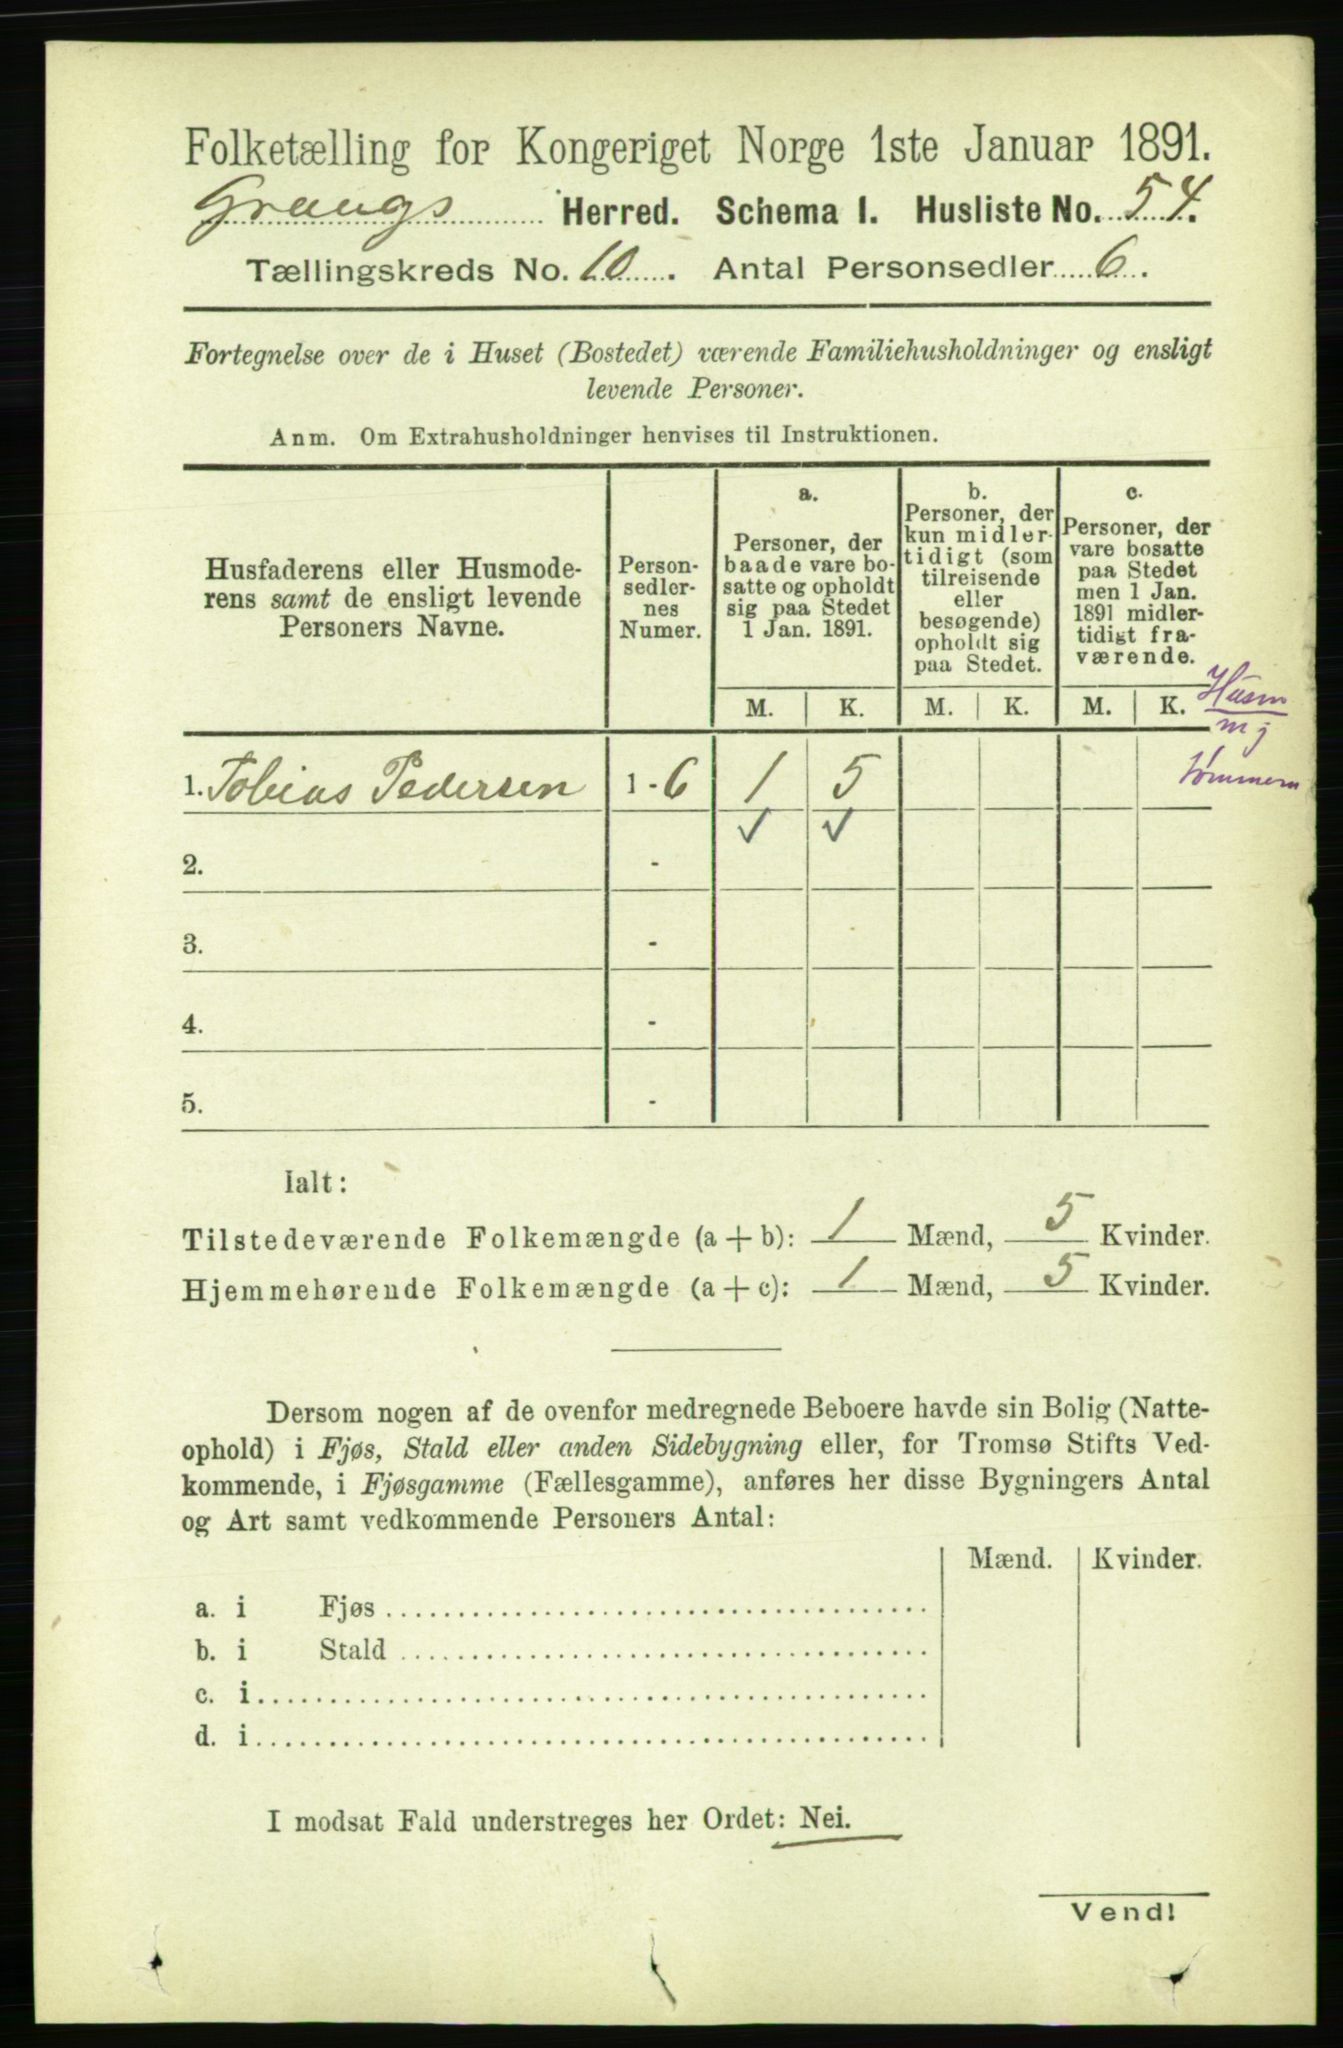 Folketælling for Kongeriget Norge 1ste Januar 1891.
Graugs Herred. Schema I. Husliste No. 54.
Tællingskreds No. 10. Antal Personsedler 6.
Fortegnelse over de i Huset (Bostedet) værende Familiehusholdninger og ensligt
levende Personer.
Anm. Om Extrahusholdninger henvises til Instruktionen.
Husfaderens eller Husmode-
rens samt de ensligt levende
Personers Navne.
Person-
sedler-
nes
Numer.
a.
Personer, der
baade vare bo-
satte og opholdt
sig paa Stedet
1 Jan. 1891.
b.
Personer, der
kun midler-
tidigt (som
tilreisende
eller
besøgende)
opholdt sig
paa Stedet.
c.
Personer, der
vare bosatte
paa Stedet
men 1 Jan.
1891 midler-
tidigt fra-
værende.
M. K. M. K. M. K.
Husm
m j
tømmerm
1. Tobias Pedersen 1 - 6 1 5
✓ ✓
2. -
3. -
4. -
5. -
Ialt:
Tilstedeværende Folkemængde (a + b): 1 Mænd, 5 Kvinder.
Hjemmehørende Folkemængde (a + c): 1 Mænd, 5 Kvinder.
Dersom nogen af de ovenfor medregnede Beboere havde sin Bolig (Natte-
ophold) i Fjøs, Stald eller anden Sidebygning eller, for Tromsø Stifts Ved-
kommende, i Fjøsgamme (Fællesgamme), anføres her disse Bygningers Antal
og Art samt vedkommende Personers Antal:
Mænd. Kvinder.
a. i Fjøs
b. i Stald
c. i
d. i
I modsat Fald understreges her Ordet: Nei.
Vend!